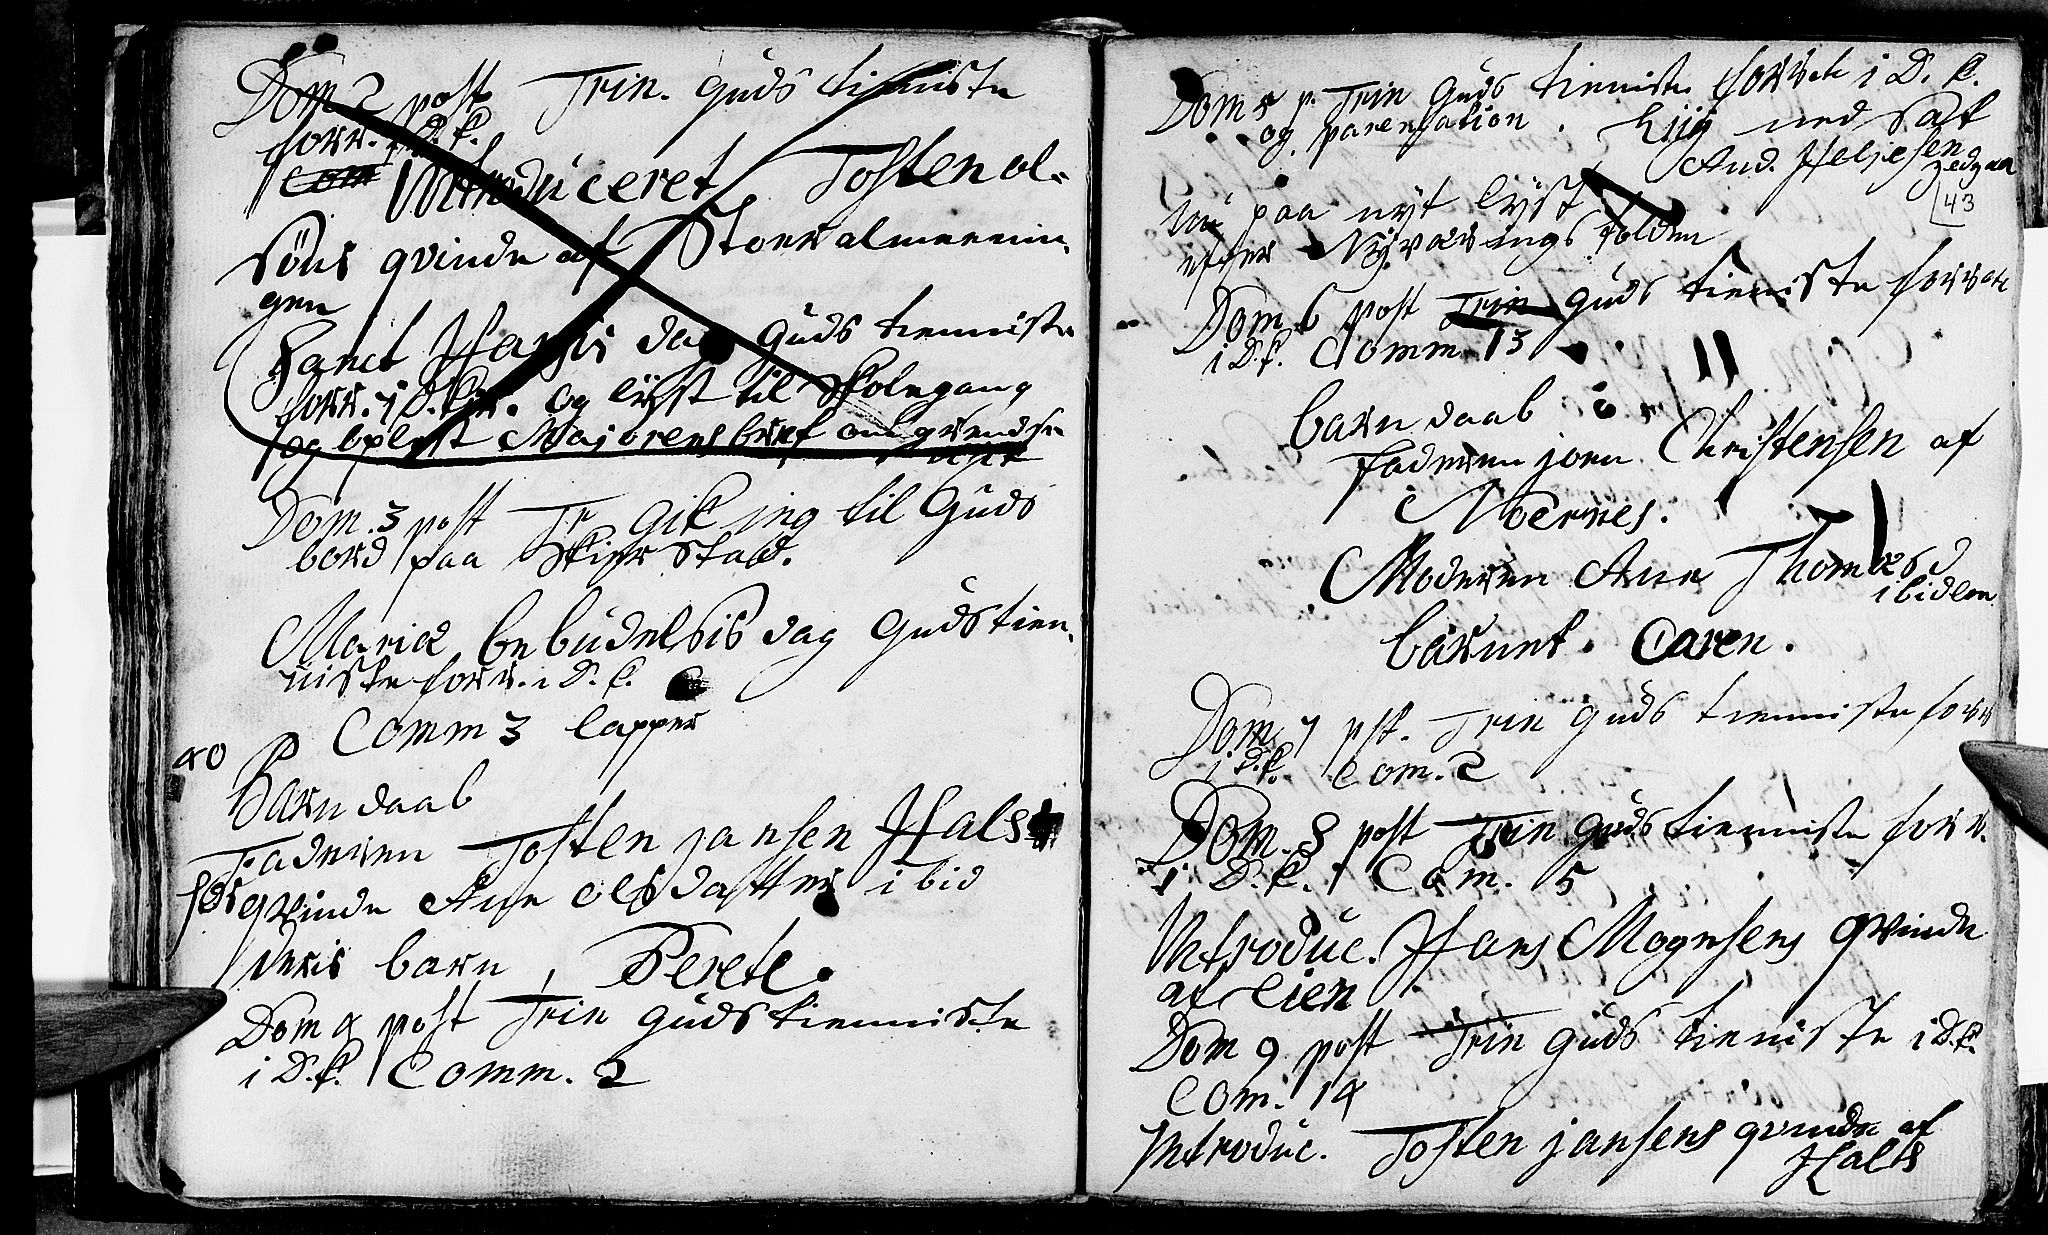 Dom 2 post Trin. Guds tienniste
forr. i D. K.
Com Introduceret Tosten ol-
söns qvinde af Stoeralmeenin-
gen
Sanct Hansis dag Guds tienniste
forr. i D. Kir. og lyst til Skolegang
og oplyst Majorens bref om grendse
Dom. 3 post Tr gik jng til Guds
bord paa Skierstad.
Mariæ bebudelsis dag Gudstien-
niste forr. i D. K.
Comm 3 lapper
Barn daab
Faderen Tosten jansen Hals
qvinde Ane olsdatter ibid
deris barn, Berete.
Dom 4 post Trin Guds tienniste
i D. K. Comm. 2
Dom 5 p. Trin Guds tienniste forret i D. K.
og parentation. Liig nedsat
And. Heljesen
43
nu paa nyt lyst
efter
Dom. 6 post Trin Guds tienniste forret
i D. K. Comm 13
barn daab
Faderen jorn Christensen af
Noernes.
Moderen Ane Thomæsd
ibidem
barnet. Caren.
Dom. 7 pst. Trin Guds tienniste forr
i D. K. Com. 2
Dom. 8 post Trin Guds tienniste forr.
i D. K. Com. 5
Introduc. Hans Mognsens qvinde
af Lien
Dom 9 post Trin Guds tieniste i D. K.
Com. 14
Introduc. Tosten jansens qvinde af
Hals